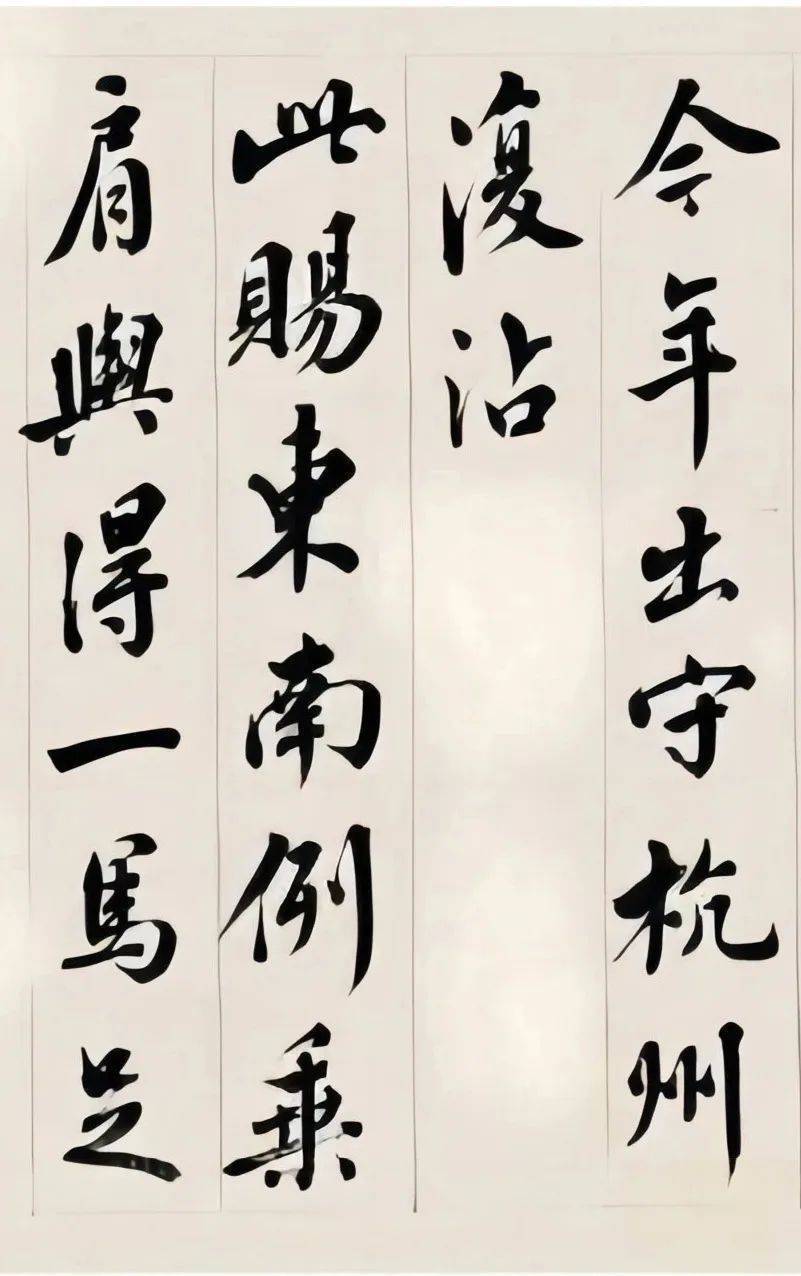 今年出守杭州
復沾
此賜東南例乗
肩輿得一馬足